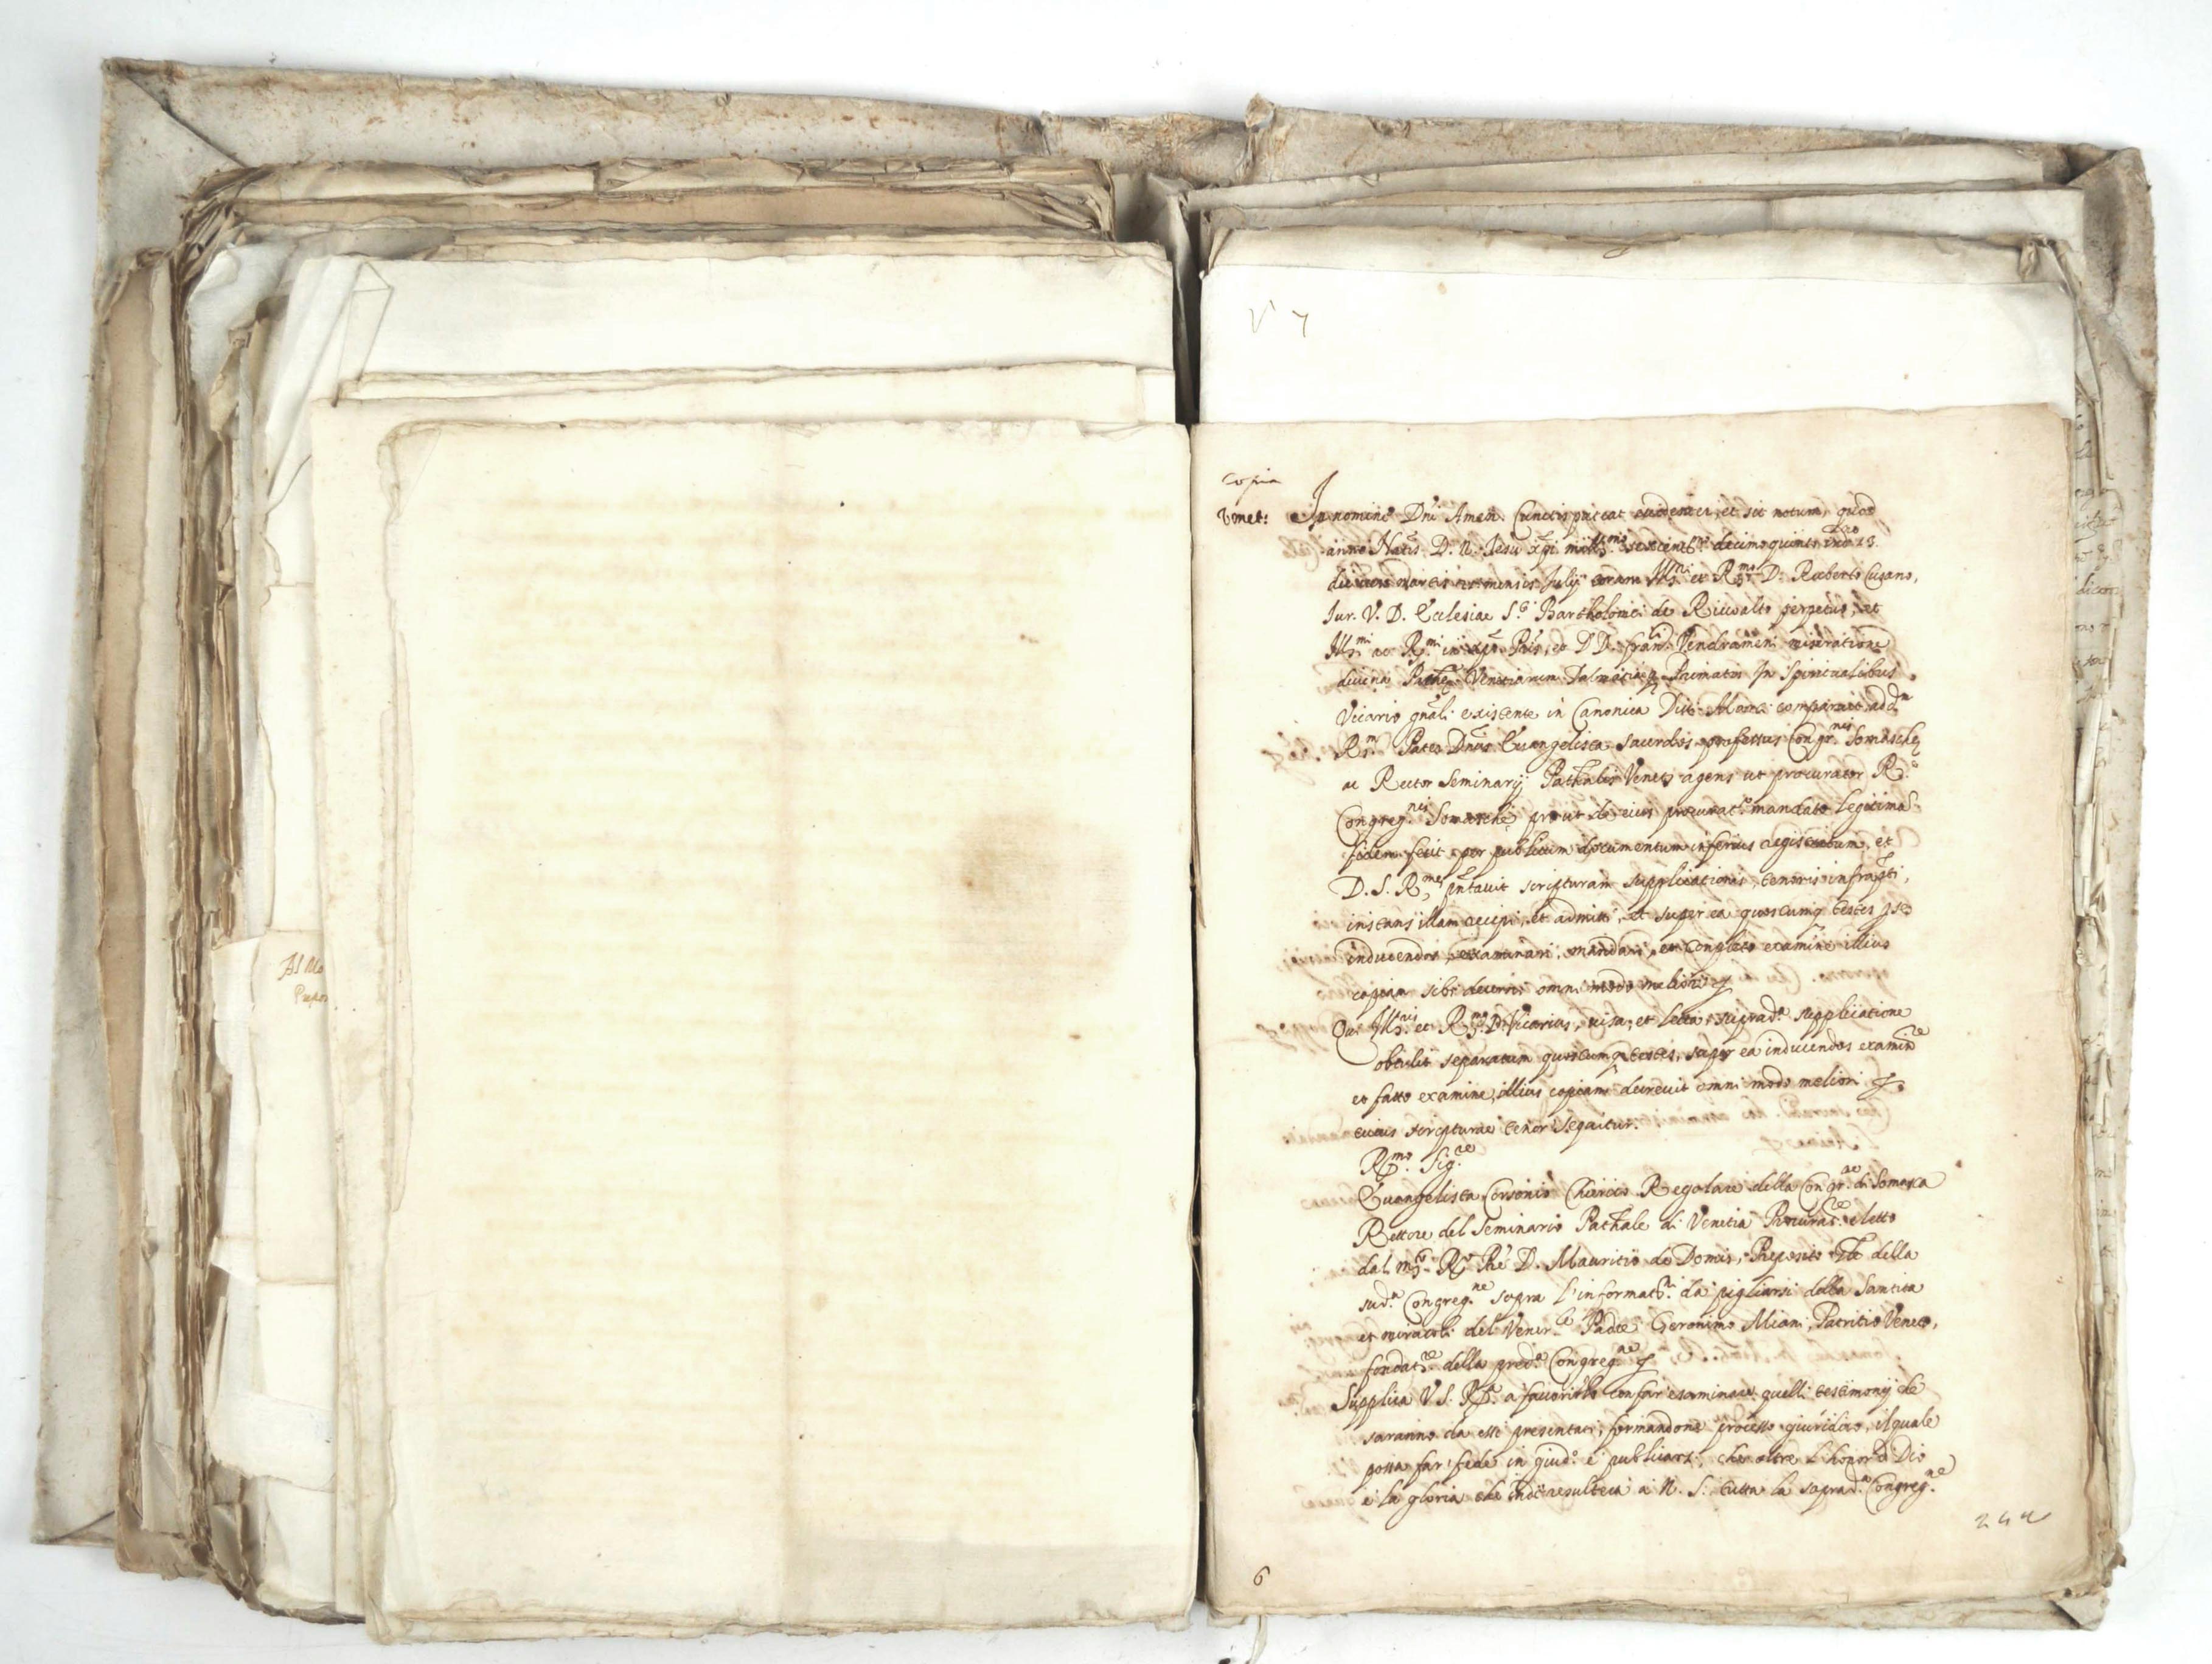 Al Mo
Prepos
V 7
Copia
Venet:
In nomine Dni Amen. Cunctis pateat evidenter, et sit notum, quod
anno Natis D. N. Jesu Xpi mill.mo sexcent.o decimo quinto Ind.e 13.
die vero martis mensis Julij coram Ill.ri et R.mo D. Ruberto Cusano,
Iur. V. D. Ecclesiae S.ti Bartholomei de Rivoalto perpetuo, et
Ill.mi ac R.mi in Xpo Pris, et D D. Fran.ci Vendrameni miseratione
divina Pathae Venetiarum Dalmatiaeq. Primatis In Spiritualibus
Vicario gnali existente in Canonica Divi Marci comparuit add.m
R.dus Pater Dnus Evangelista sacerdos professus Congr.nis Somaschae
ac Rector Seminarij Pathalis Venets agens ut procurator R.
Congreg.nis Somaschae prout de eius procurat.o mandato legitima
fidem fecit per publicum documentum inferius registratum, et
D. S. R.mae pntavit scripturam supplicationis, tenoris infrapti,
instans illam accipi, et admitti, et super ea quoscumq testes pse
inducendos, examinari, mandari, et Completo examine illius
copiam sibi decerni omni modo meliori &
Qui Ill.ris et R.mus D. Vicarius, visa, et lecta suprad.a supplicatione
obtulit separatum quoscumq testes, super ea inducendos examin.re
et fatto examine, illius copiam decrevit omni modo meliori &.
cuius scripturae tenor sequitur.
R.mo Sig.re
Evangelista Corsonio Chierico Regolare della Congr.ne di Somasca
Rettore del Seminario Pathale di Venetia Procurat.re eletto
dal m.to R.do Pre D. Mauritio de Domis, Preposito Gle della
sud.a Congreg.ne sopra l'informat.ni da pigliarsi della Santita
et miracoli del Vener.le Padre Geronimo Miani, Patritio Veneto,
fondat.re della pred.a Congreg.ne &
Supplica V. S. R.ma a favorirlo con far esaminare quelli testimonij che
saranno da esso presentati, formandone processo giuridico, il quale
possa far fede in giud.o e publicarsi, che oltre l'honor di Dio
e la gloria che indi resulterà a N. S. tutta la soprad.a Congreg.ne
6
244